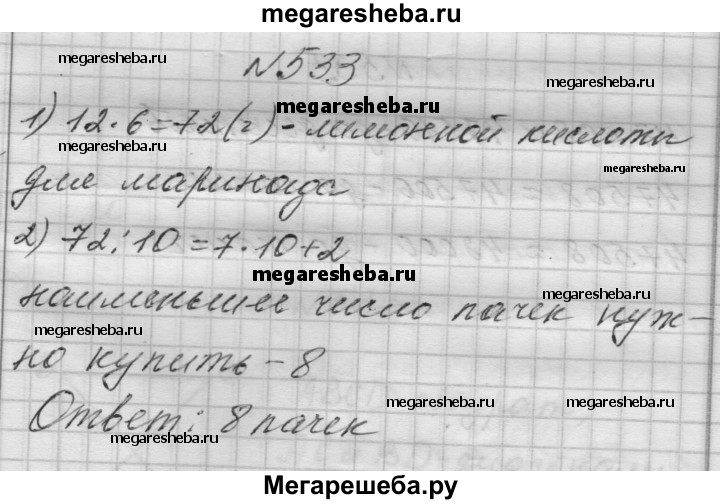 megaresheba.ru
№533
megaresheba.ru megaresheba.ru
megaresheba.ru
1) 12·6=72(г) - лимонной кислоты
для маринада
megaresheba.ru
2) 72:10=7·10+2
megaresheba.ru
наименьшее число пачек нуж-
megaresheba.ru megaresheba.ru
но купить - 8
megaresheba.ru megaresheba.ru
Ответ: 8 пачек
megaresheba.ru megaresheba.ru
Мегарешеба.ру